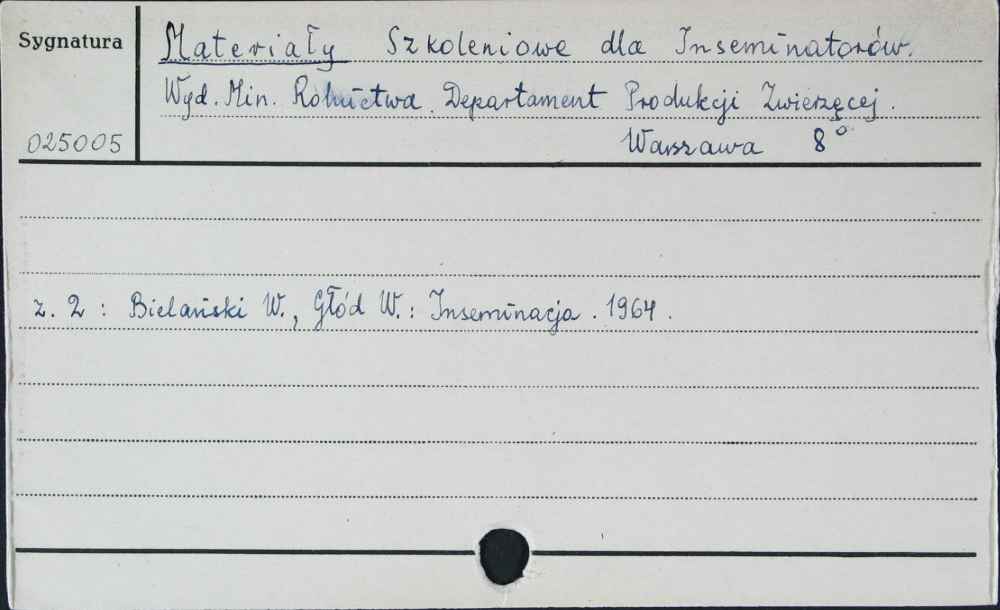 Sygnatura
Materiały Szkoleniowe dla Inseminatorów.
Wyd. Min. Rolnictwa. Departament Produkcji Zwierzęcej.
025005
Warszawa 8°
z. 2 : Bielański W., Głód W.: Inseminacja. 1964.